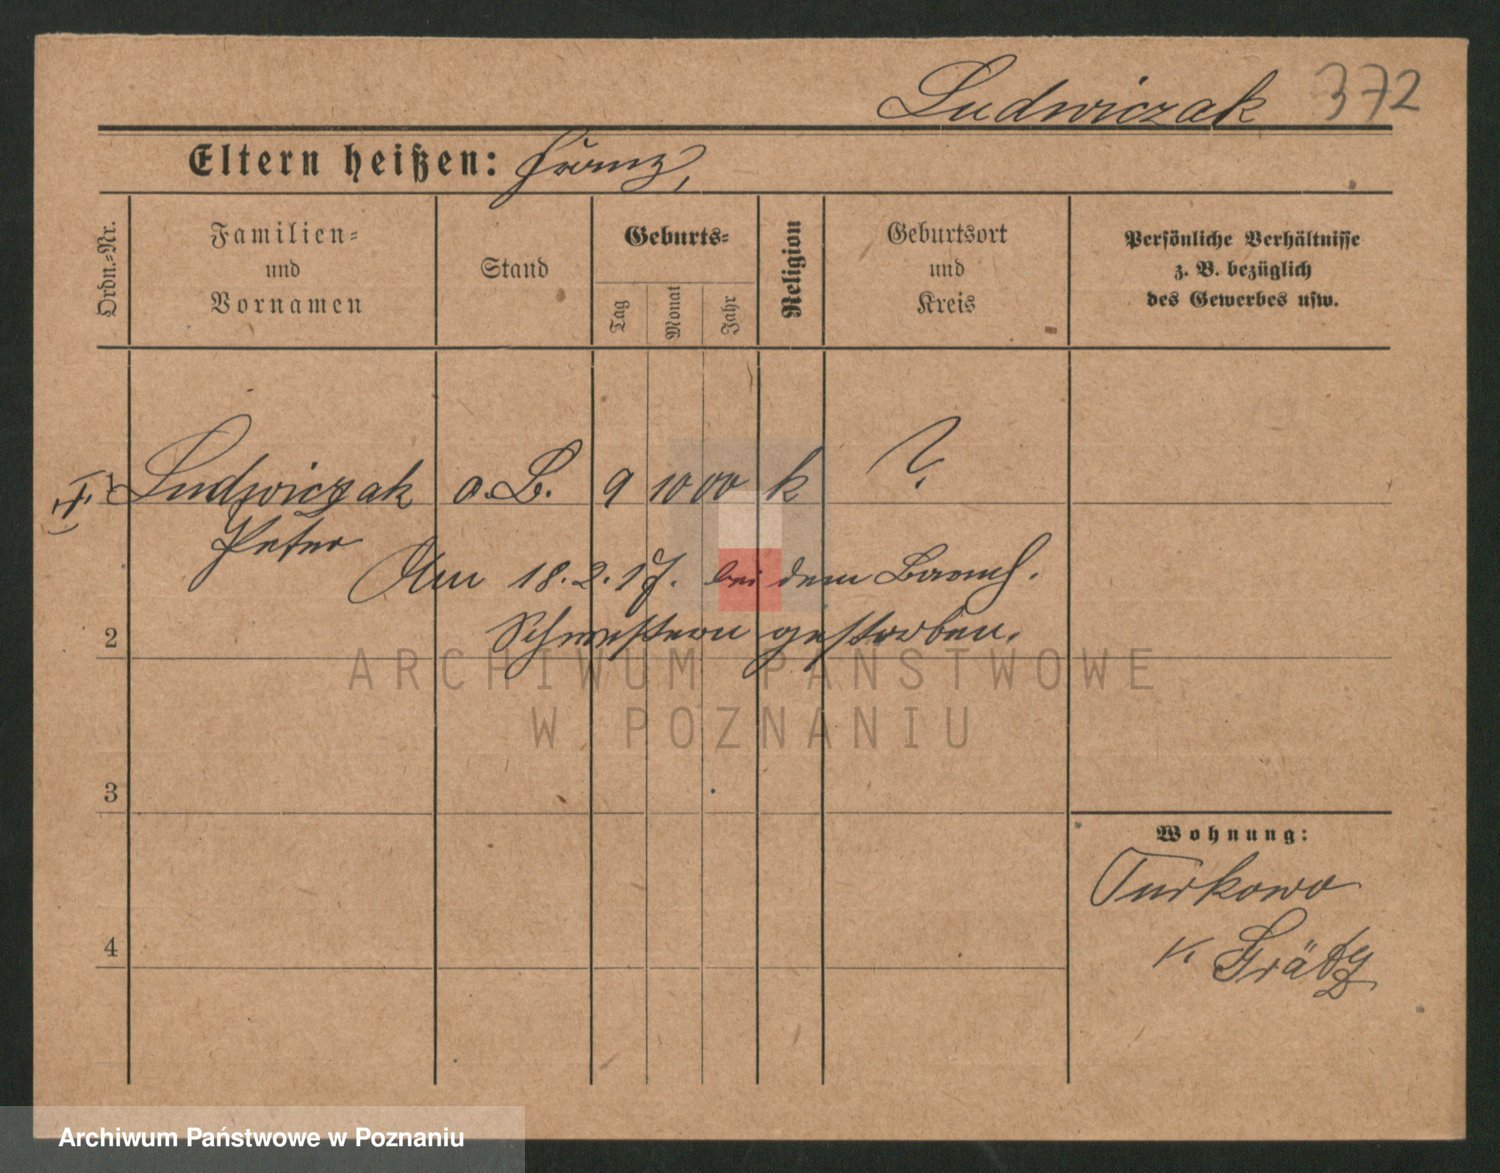 Ludwiczak 372
Eltern heißen: Franz,
Ordn.-Nr.
Familien-
und
Vornamen
Stand
Geburts-
Tag
Monat
Jahr
Religion
Geburtsort
und
Kreis
Persönliche Verhältnisse
z. B. bezüglich
des Gewerbes usw.
1 Ludwiczak o.B. 9 10 00 k ?
Peter
Am 18.2.17. bei dem Barmh.
2 Schwestern gestorben.
ARCHIWUM PAŃSTWOWE
W POZNANIU
3
Wohnung:
Turkowo
4 K. Grätz
Archiwum Państwowe w Poznaniu